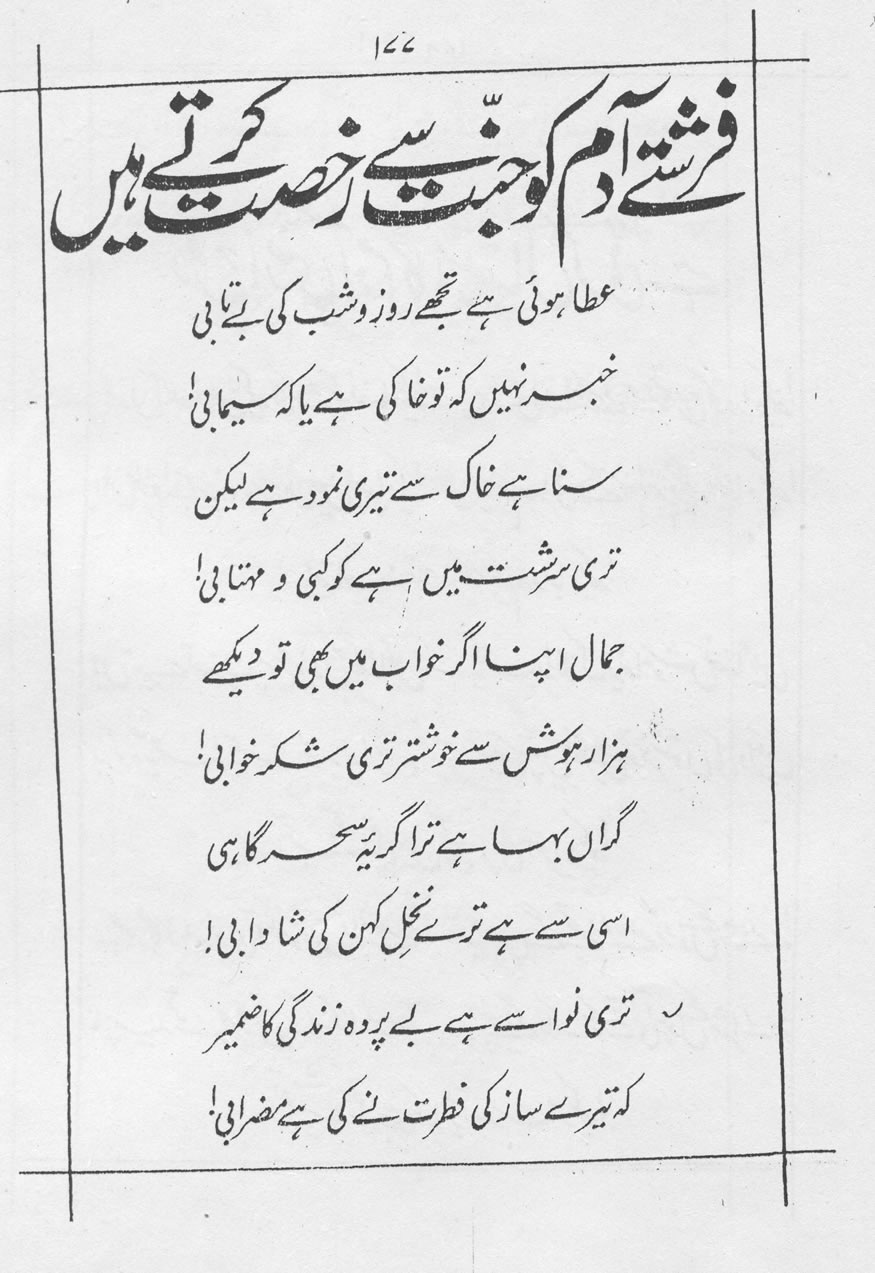 ۱۷۷
فرشتے آدم کو جنّت سے رخصت کرتے ہیں
عطا ہوئی ہے تجھے روز و شب کی بے تابی
خبر نہیں کہ تو خاکی ہے یا کہ سیمابی!
سنا ہے خاک سے تیری نمود ہے لیکن
تری سرشت میں ہے کوکبی و مہتابی!
جمال اپنا اگر خواب میں بھی تو دیکھے
ہزار ہوش سے خوشتر تری شکر خوابی!
گراں بہا ہے ترا گریۂ سحر گاہی
اسی سے ہے ترے نخلِ کہن کی شادابی!
تری نوا سے ہے بے پردہ زندگی کا ضمیر
کہ تیرے ساز کی فطرت نے کی ہے مضرابی!